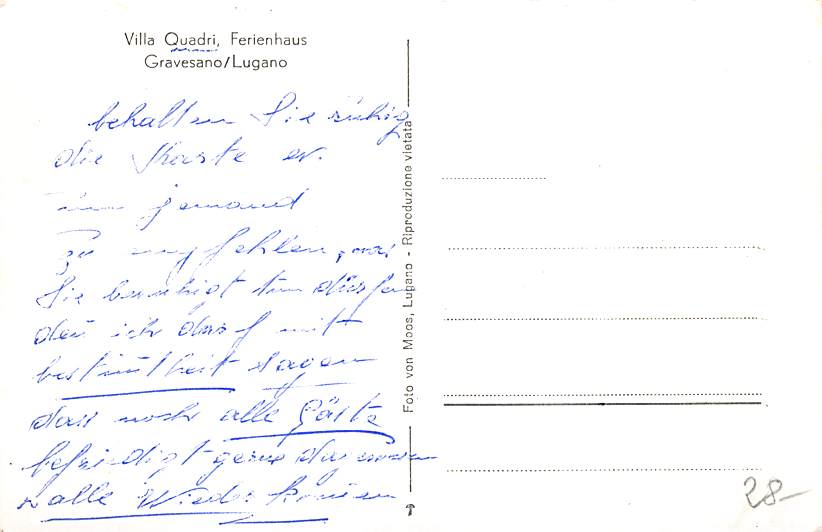 Villa Quadri, Ferienhaus
Gravesano/Lugano
behalten Sie ruhig
die Karte ev.
um jemand
zu empfehlen, was
Sie beruhigt tun dürfen
den ich darf mit
bestimtheit sagen
das noch alle Gäste
befridigt gerne da waren
alle Wieder kommen
Foto von Moos, Lugano - Riproduzione vietata
28-